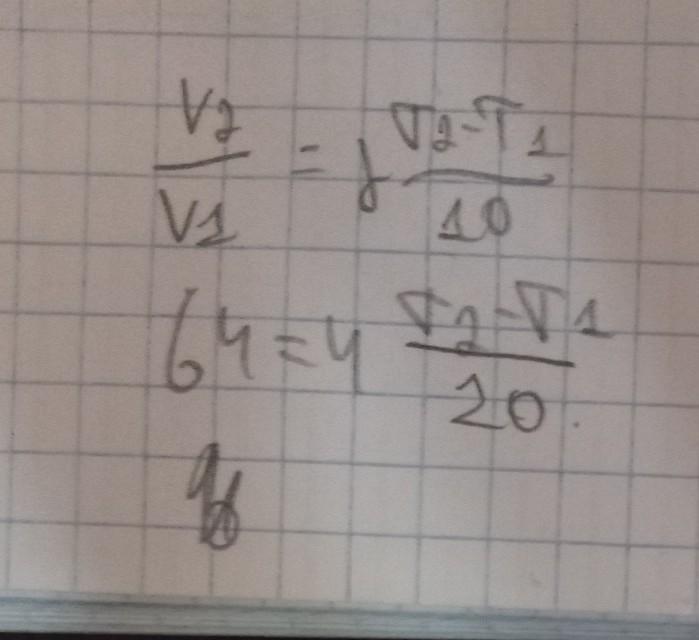 V2/V1 = γ T2-T1/10
64 = 4 T2-T1/20.